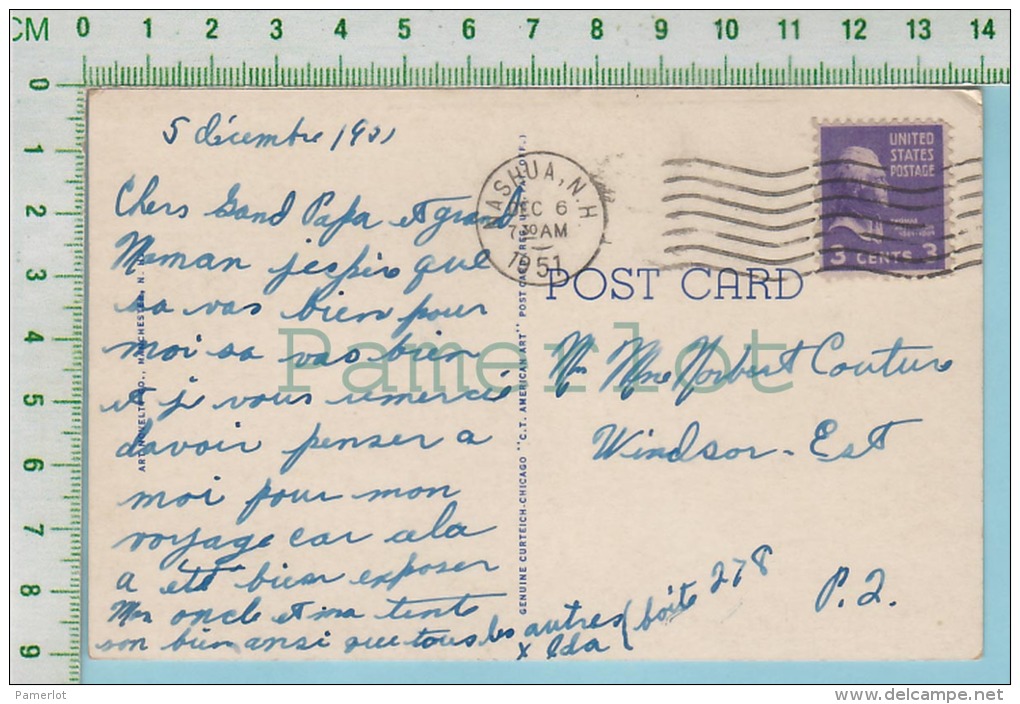 CM 0 1 2 3 4 5 6 7 8 9 10 11 12 13 14
0
1
2
3
4
5
6
7
8
9
5 décembre 1951
Chers Gand Papa et grand
Maman jespère que
sa vas bien pour
moi sa vas bien
et je vous remercie
davoir penser a
moi pour mon
voyage car cela
a été bien
Mon oncle et ma tente
son bien ansi que tous les autres
x Ida
(boite 278
NASHUA, N.H.
DEC 6
7 30 AM
1951
UNITED
STATES
POSTAGE
3 CENTS 3
POST CARD
Mr Mme Norbert Couture
Windsor-Est
P.Q.
GENUINE CURTEICH-CHICAGO "C.T. AMERICAN ART" POST CARD
Pamerlot
Pamerlot
www.delcampe.net